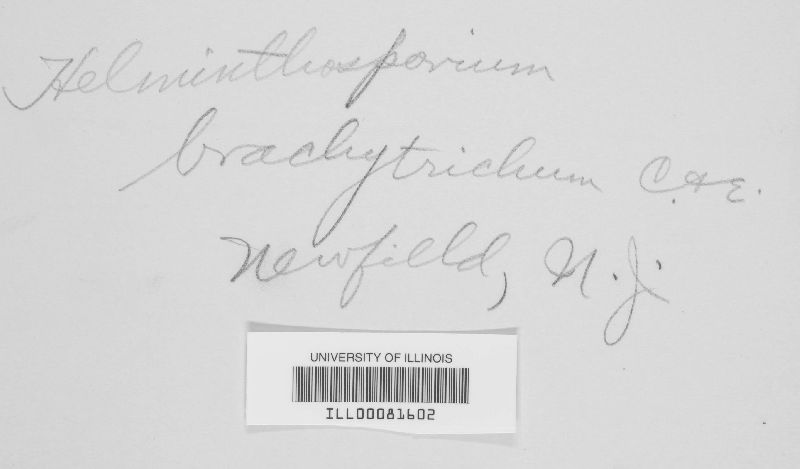 Helminthosporium
brachytrichum C. & E.
Newfield, N. J.
UNIVERSITY OF ILLINOIS
ILL00081602